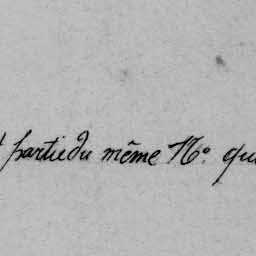 partie du même N° qu